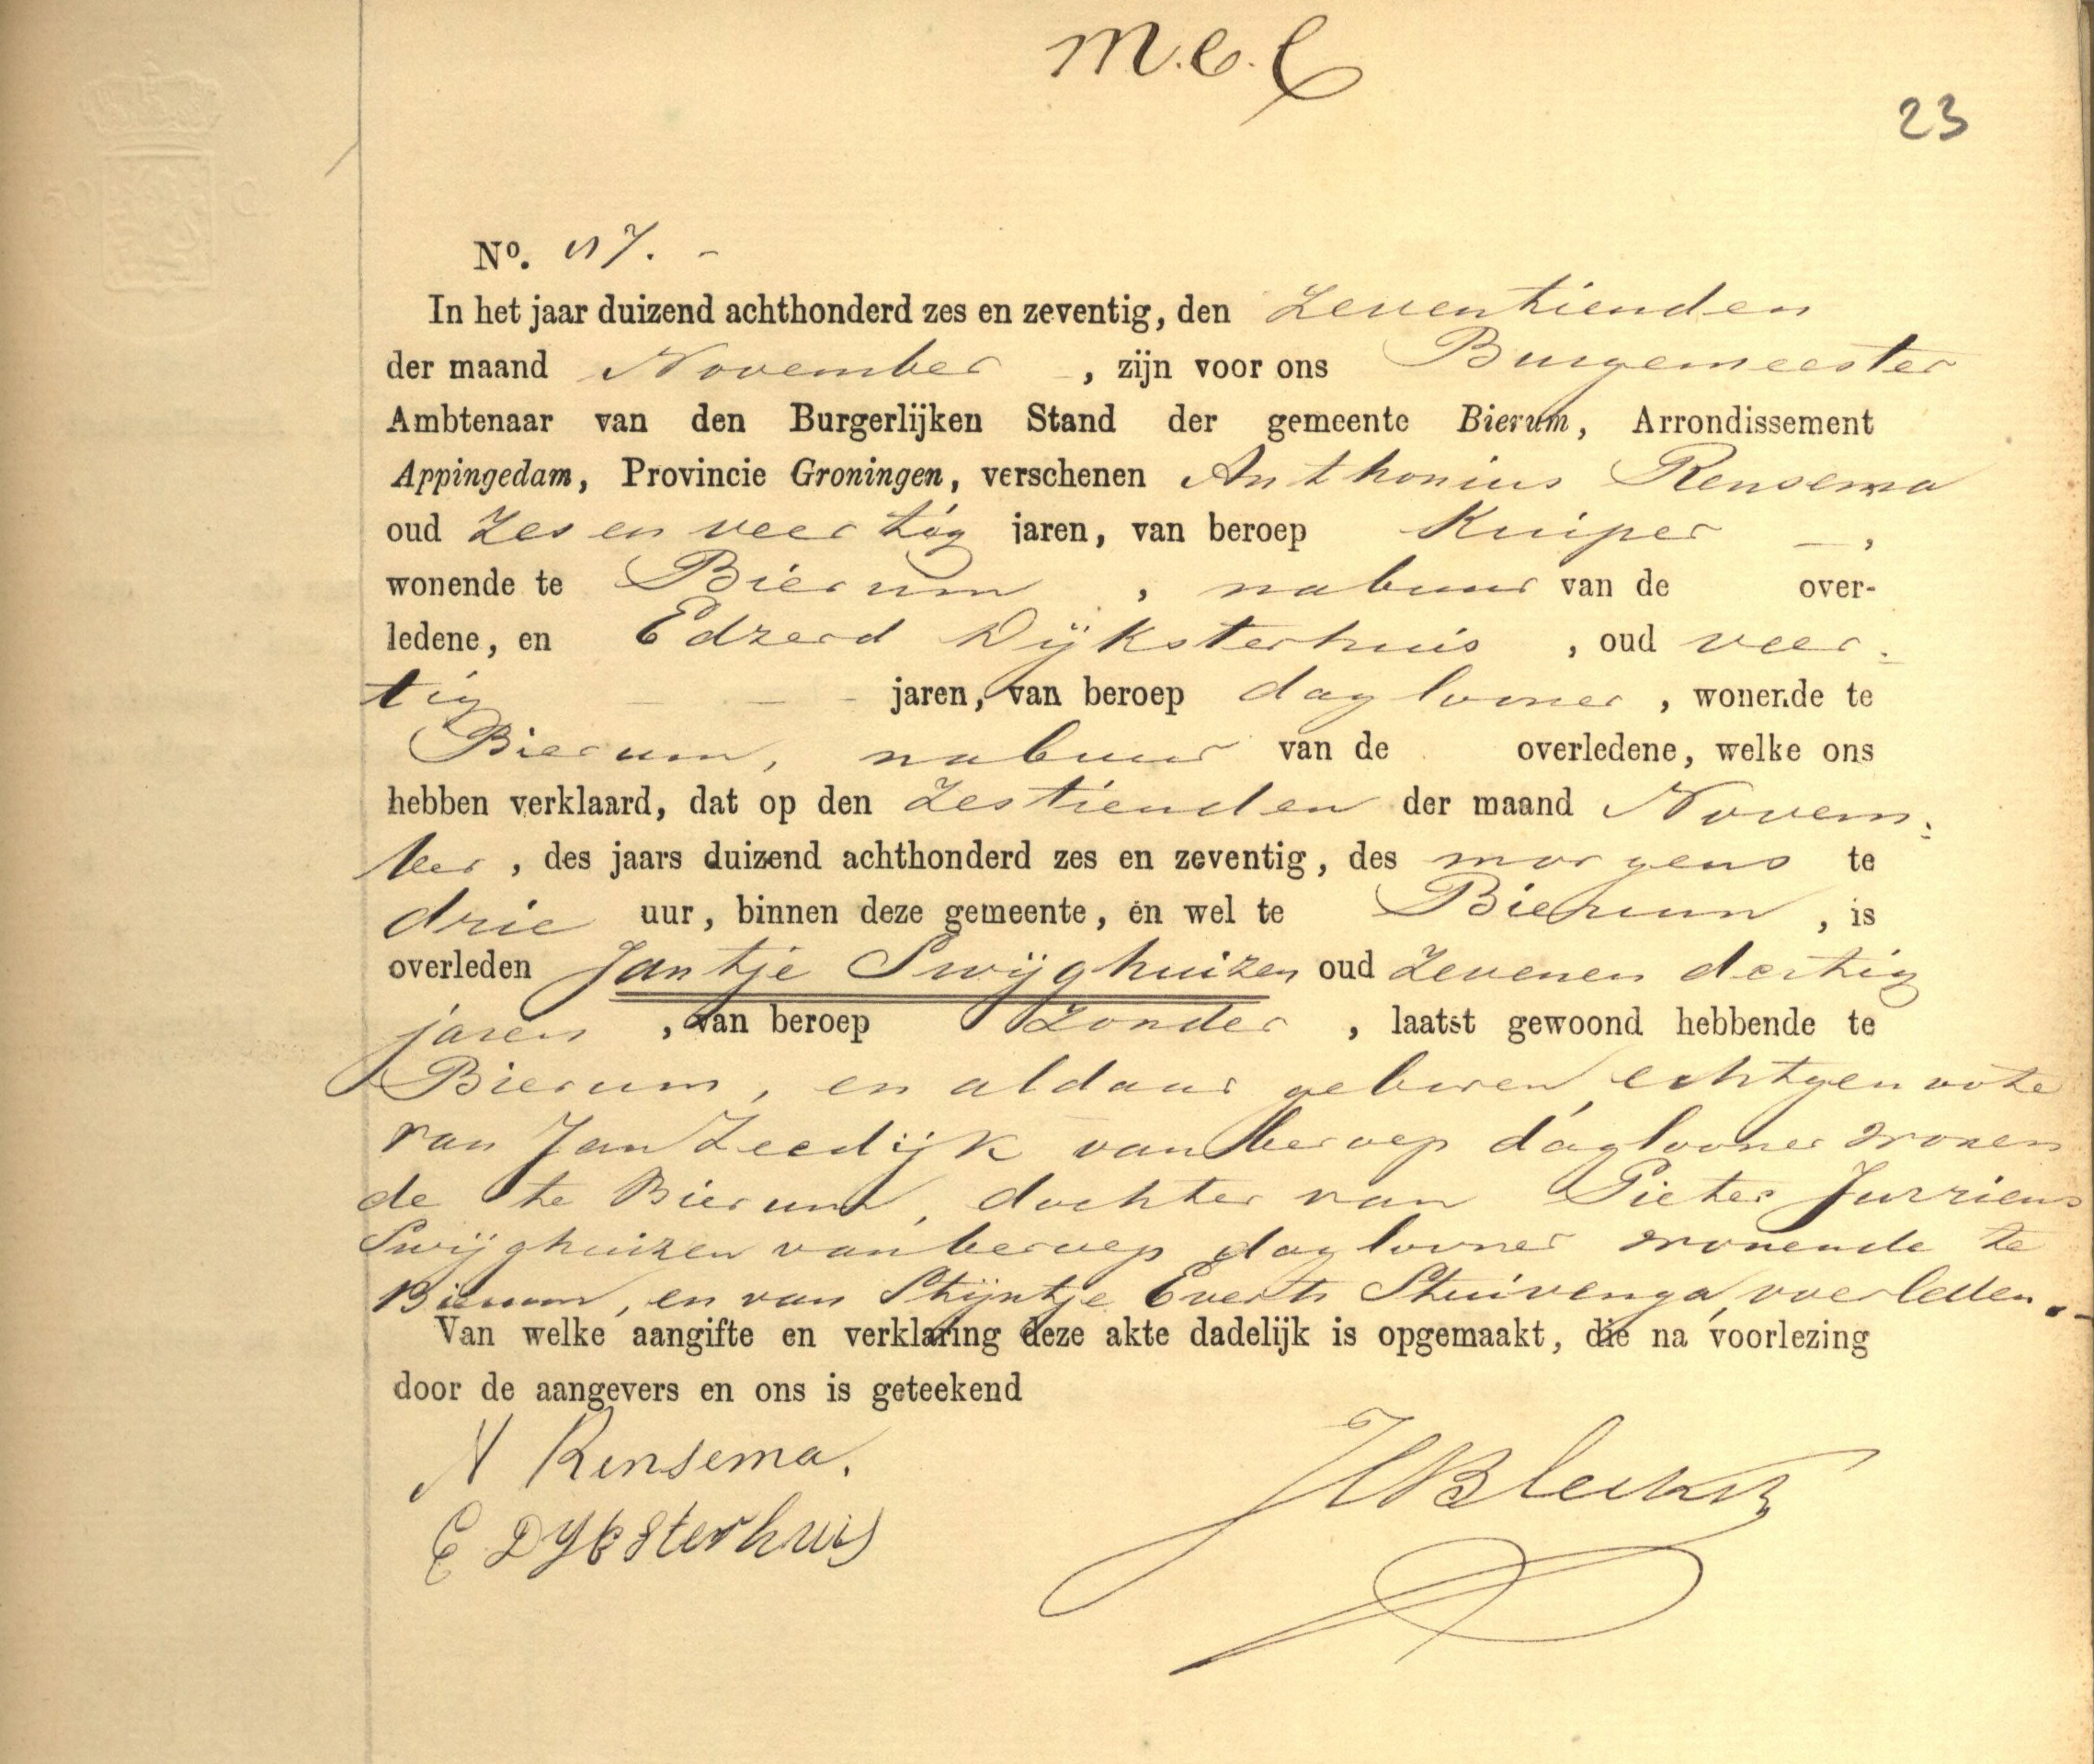 M. C. C
23
No. 57. -
In het jaar duizend achthonderd zes en zeventig, den Zeventienden
der maand November , zijn voor ons Burgemeester
Ambtenaar van den Burgerlijken Stand der gemeente Bierum, Arrondissement
Appingedam, Provincie Groningen, verschenen Anthonius Rensema
oud Zes en veertig jaren, van beroep Kuiper — ,
wonende te Bierum , nabuur van de over-
ledene, en Edzerd Dijksterhuis , oud veer-
tig — — - jaren, van beroep daglooner , wonende te
Bierum, nabuur van de overledene, welke ons
hebben verklaard, dat op den Zestienden der maand Novem:
ber , des jaars duizend achthonderd zes en zeventig, des morgens te
drie uur, binnen deze gemeente, en wel te Bierum , is
overleden Jantje Swijghuizen oud Zeven en dertig
jaren , van beroep Zonder , laatst gewoond hebbende te
Bierum, en aldaar geboren, echtgenoote
van Jan Zeedijk van beroep daglooner wonen
de te Bierum, dochter van Pieter Jurriens
Swijghuizen van beroep daglooner wonende te
Bierum, en van Stijntje Everts Stuivenga, overleden. -
Van welke aangifte en verklaring deze akte dadelijk is opgemaakt, die na voorlezing
door de aangevers en ons is geteekend
A Rensema.
E DYksterhuis